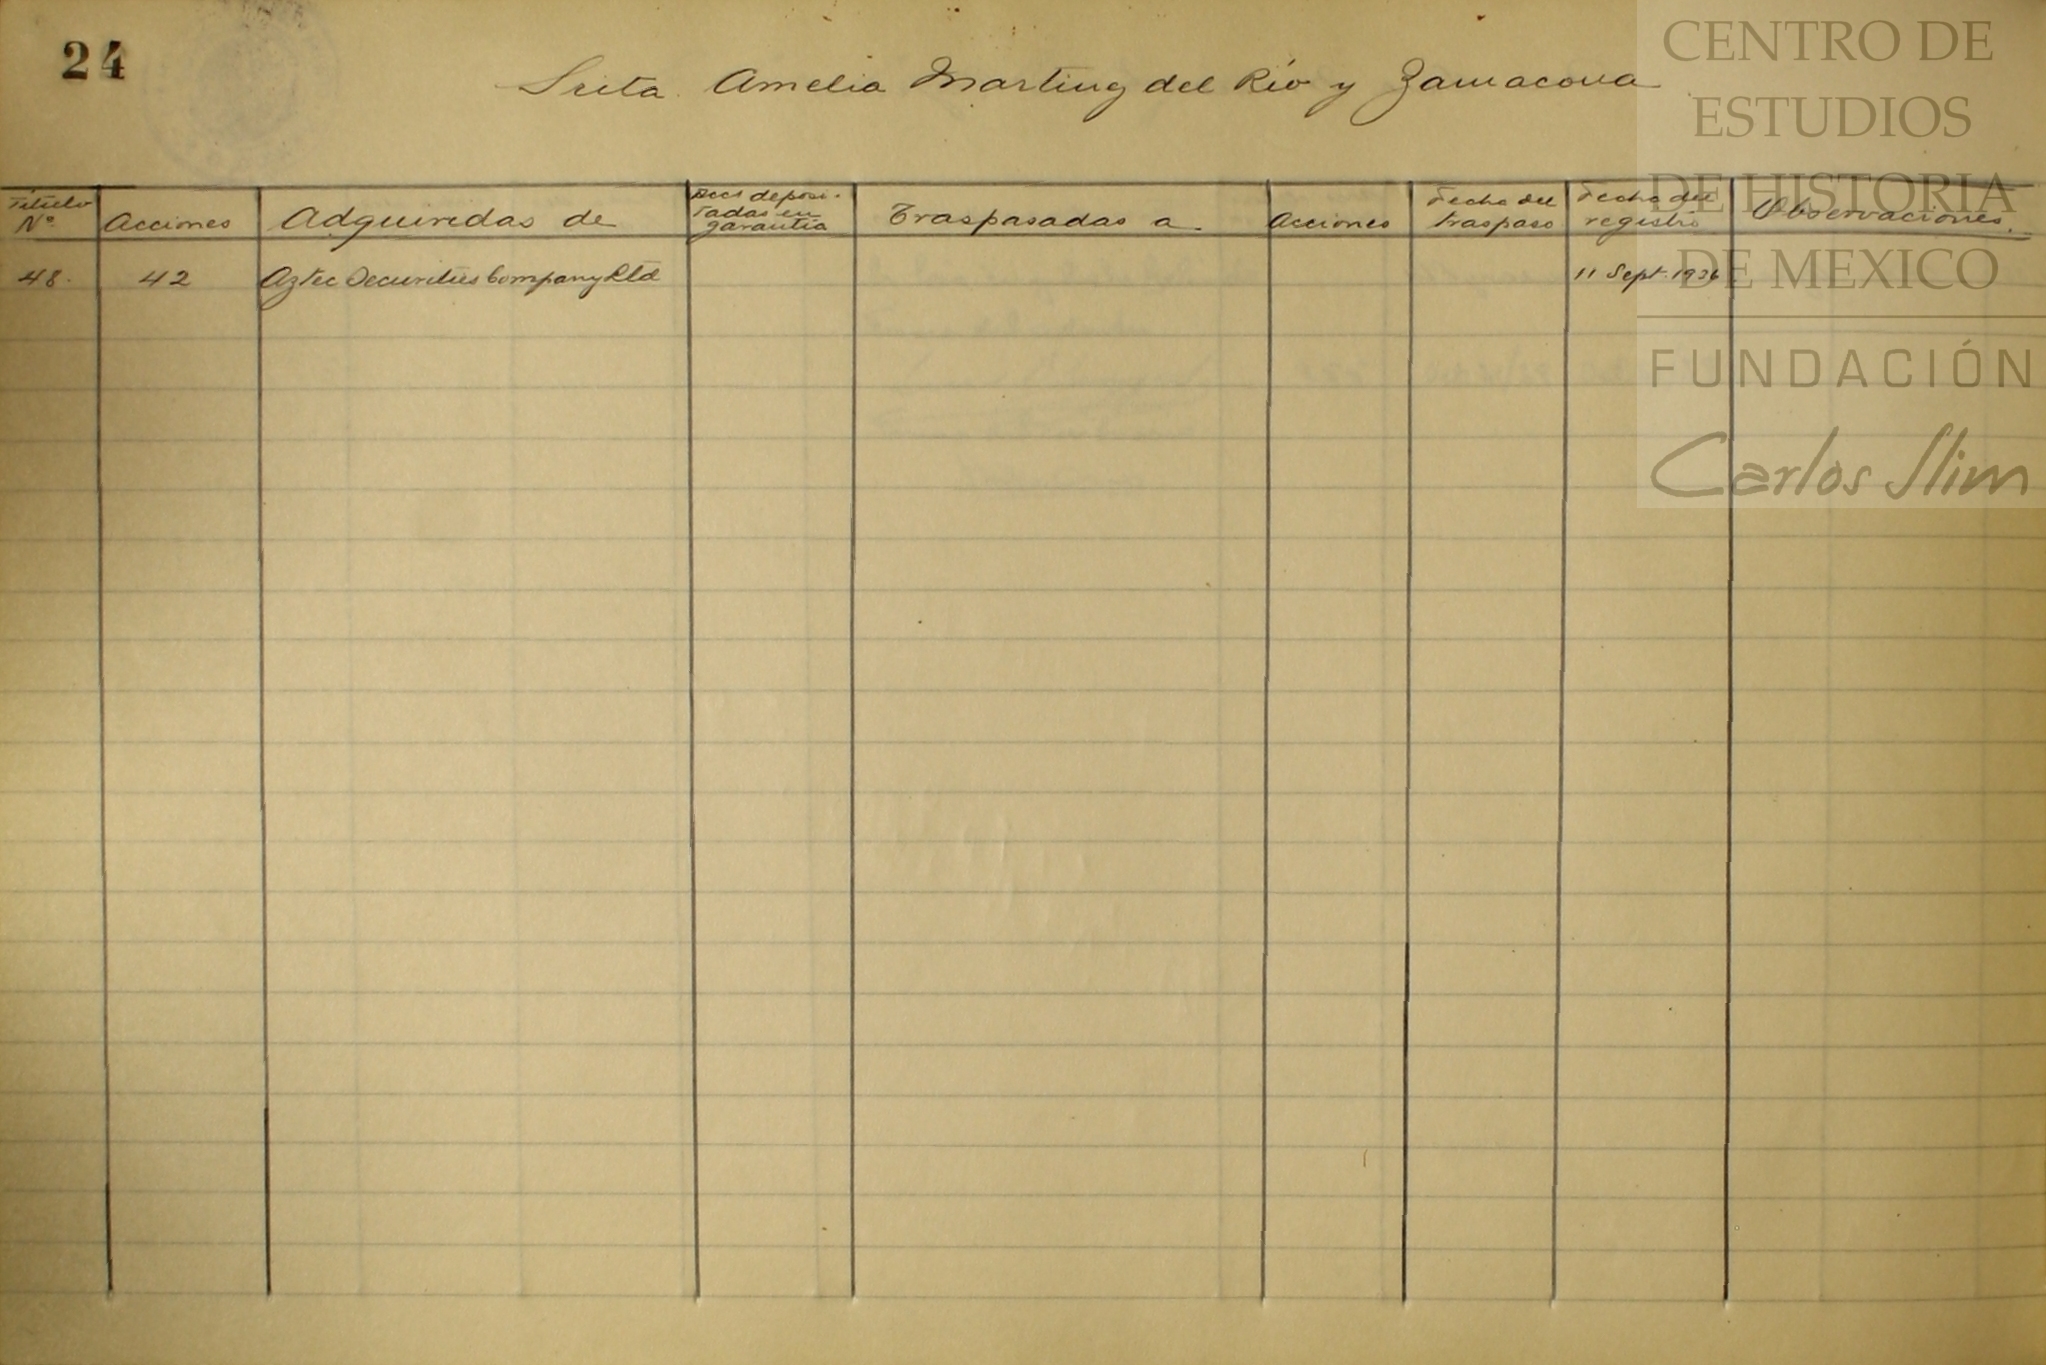 24
Srita. Amelia Martinez del Río y Zamacona
Título
Nº
Acciones
Adquiridas de
Accs deposi-
tadas en
garantía
Traspasadas a
Acciones
Fecha del
traspaso
Fecha del
registro
Observaciones.
48.
42
Aztec Securities Company Ltd
11 Sept. 1936
CENTRO DE
ESTUDIOS
DE HISTORIA
DE MEXICO
FUNDACIÓN
Carlos Slim